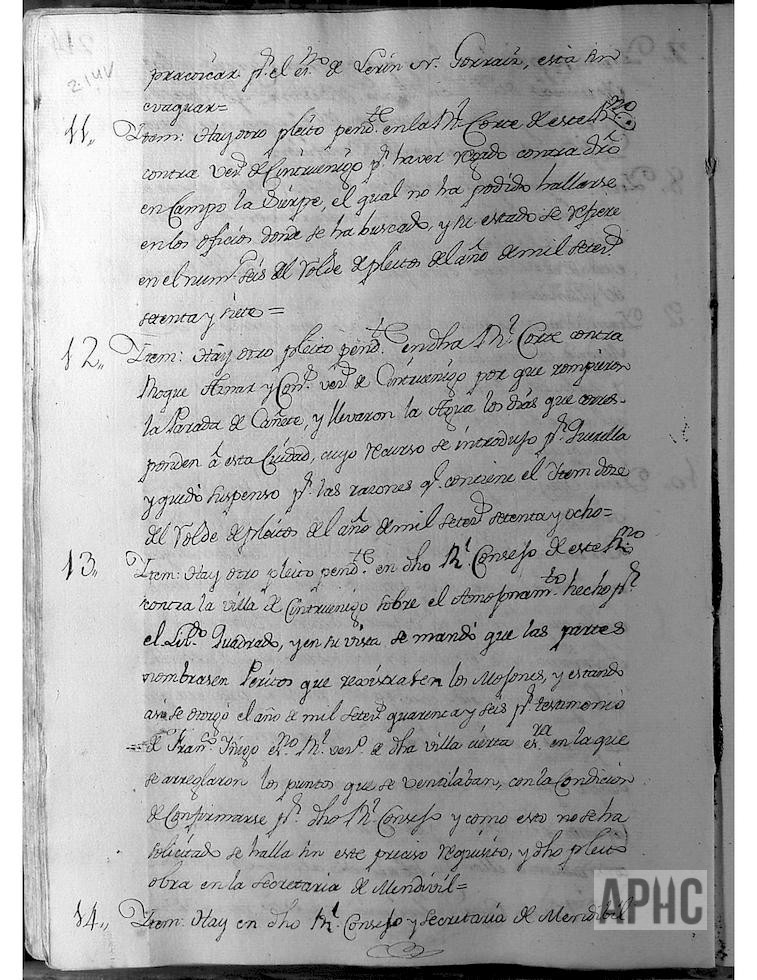 214v
practicar pr. el esno de Lerin N. Gorraiz, està sin
evaquar=
11,, Ytem: Hay otro pleito pendte. en la Rl. Corte de este Rno
contra vezs. de Cintruenigo pr. haver regado contra dro
en Campo la Sierpe, el qual no ha podido hallarse
en los oficios donde se ha buscado, y su estado se refiere
en el num. seis del Volde de pleitos del año de mil setezs.
setenta y siete=
12,, Ytem: Hay otro pleito pendte. en dha Rl. Corte contra
Roque Aznar y Cons. vezs. de Cintruenigo por que rompieron
la Parada de Cañete, y llevaron la Agua los dias que corres-
ponden â esta Ciudad, cuyo recurso se introdujo pr. Querella
y quedò suspenso pr. las razones qe. contiene el Ytem doze
del Volde de pleitos del año de mil setezs. setenta y ocho=
13,, Ytem: Hay otro pleito pendte. en dho Rl. Consejo de este Rno
contra la villa de Cintruenigo sobre el Amojonamto. hecho pr.
el Licdo. Quadrado, y en su vista se mandó que las partes
nombrasen Peritos que rexistrasen los Mojones, y estando
asi se otorgó el año de mil setezs. quarenta y seis pr. testimonio
de Franco. Yñigo esno. Rl. vezo. de dha villa cierta esra. en la que
se arreglaron los puntos que se ventilaban, con la Condicion
de Confirmarse pr. dho Rl. Consejo y como esto no se ha
solicitado se halla sin este preciso requisito, y dho pleito
obra en la Secretaria de Mendivil=
14,, Ytem: Hay en dho Rl. Consejo y Secretaria de Mendibil
APHC